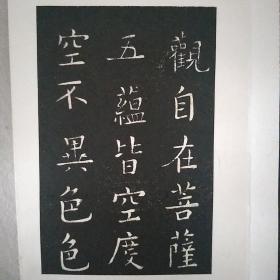 觀自在菩薩
五蘊皆空度
空不異色色